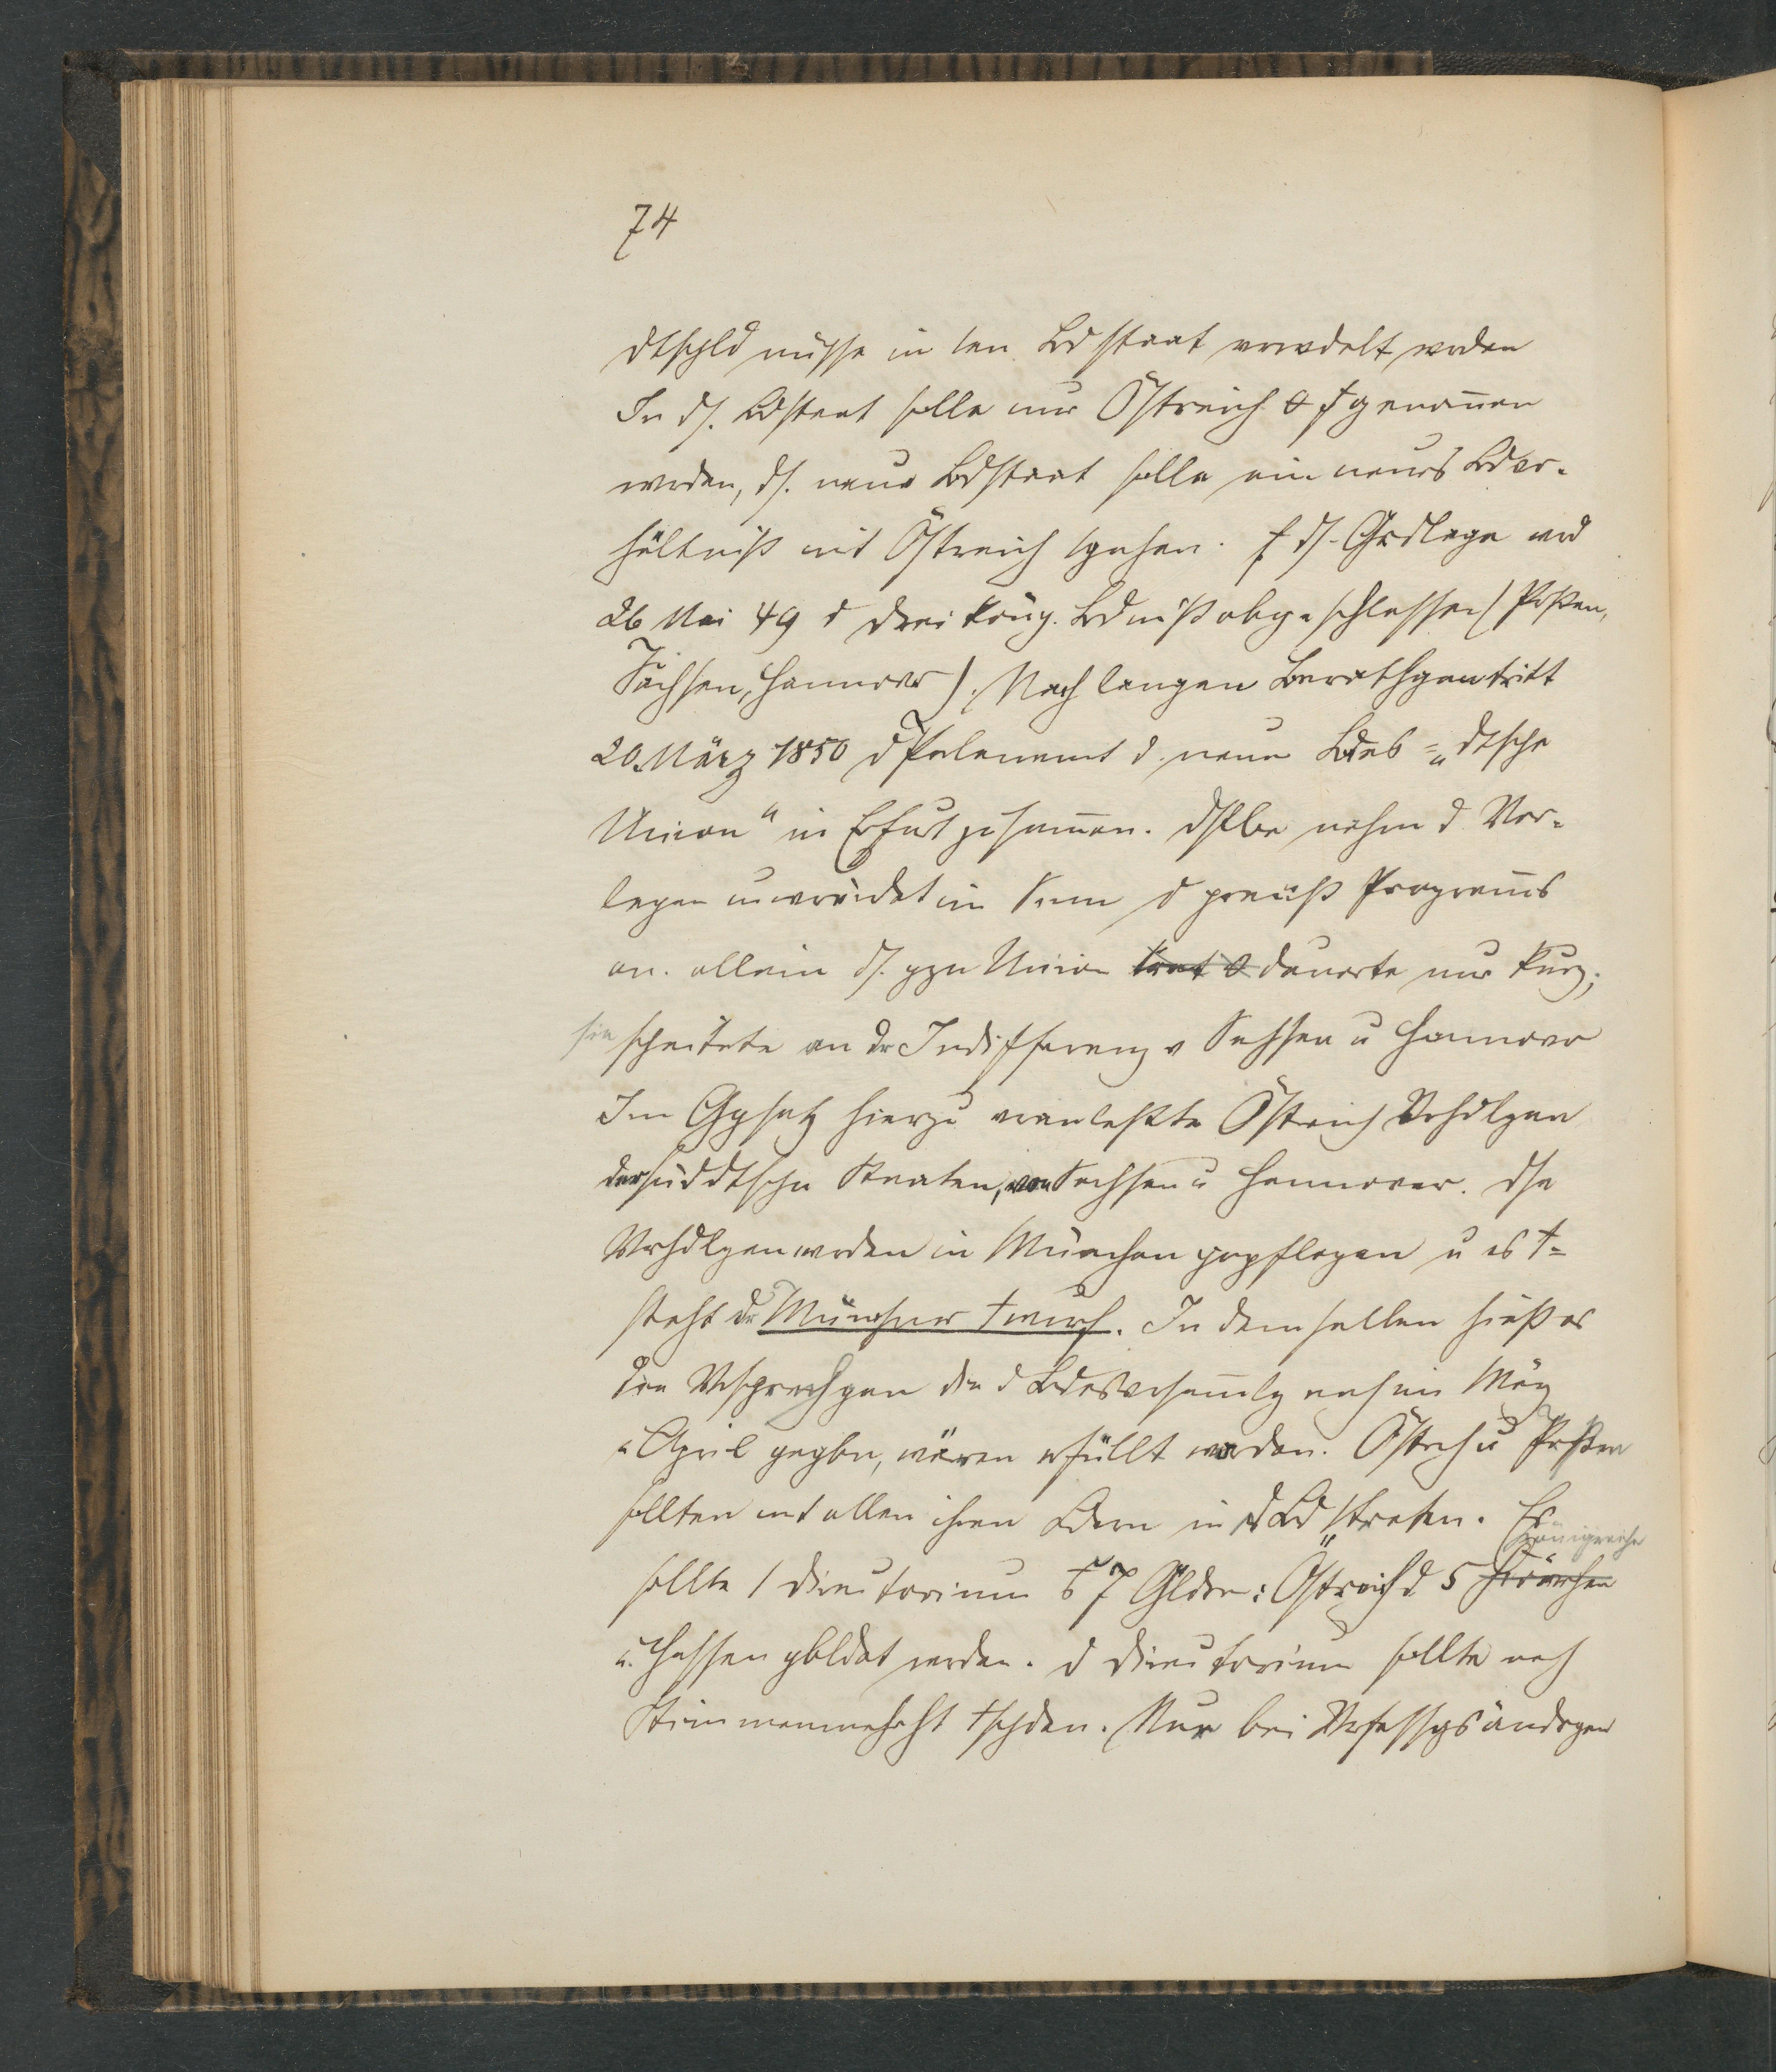 74
dtschld müsse in 1en Bdstaat verwdelt werden
In ds. Bdstaat solle nur Östreich 0 fgenom̄en
werden, ds. neue Bdstaat solle ein neues Bdver-
hältniß mit Östreich 1gehen. f ds. Grdlage wd
26 Mai 49 d drei könig. Bdniß abgeschlossen (Prßen,
Sachsen, Hannover). Nach langen Berathgen tritt
20 März 1850 d Parlament d. neuen Bdes = „dtsche
Union" in Erfurt zusam̄en. dslbe nahm d. Vor-
lagen unverändet im Sinn d preuß Program̄s
an. allein ds. gze Union trat 0 dauerte nur kurz;
sie scheiterte an dr Indifferenz v Sachsen u Hannover
Im Ggsatz hierzu veranlaßte Östreich Vrhdlgen
der süddtschn Staaten, von Sachsen u Hannover. dse
Vrhdlgen werden in München gepflogen u es t-
steht dr Münchner twurf. In demselben hieß es
die Vrsprechgen die d Bdesversam̄lg nach im März
u April gegbn, wären erfüllt worden. Östrch u Prßen
sollten mt allen ihren Ldern in d Bd 1treten. Es
sollte 1 Directorium v 7 Glidern: Östreich d 5 Königreiche
u. Hessen gbldet werden. d Directorium sollte nach
Stimmenmehrht tschden. Nur bei Verfassgsändrgen